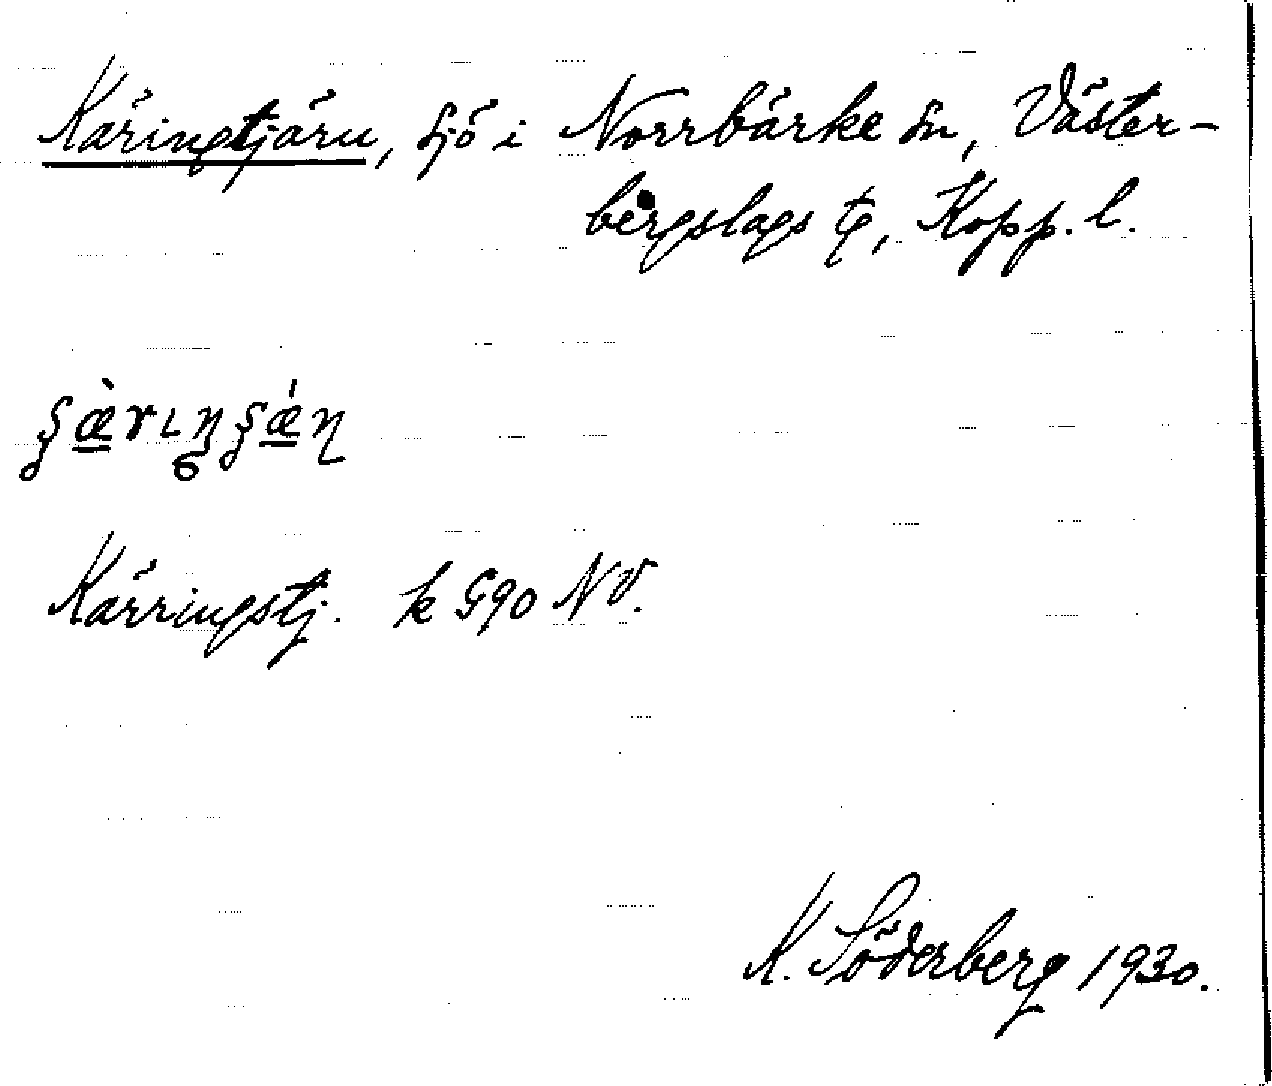 Käringtjärn, sjö i Norrbärke sn, Väster-
bergslags tg, Kopp. l.
Kärringstj. k G90 NV.
K. Söderberg 1930.